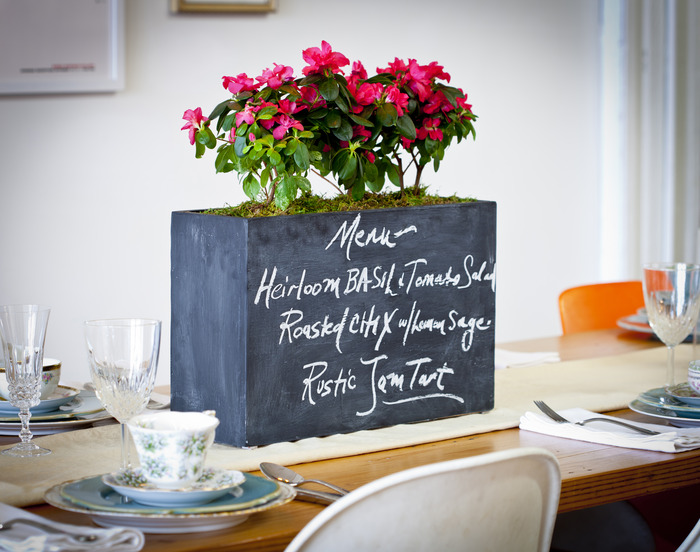 Menu~
Heirloom BASIL & Tomato Salad
Roasted CHX w/Lemon Sage
Rustic Jam Tart